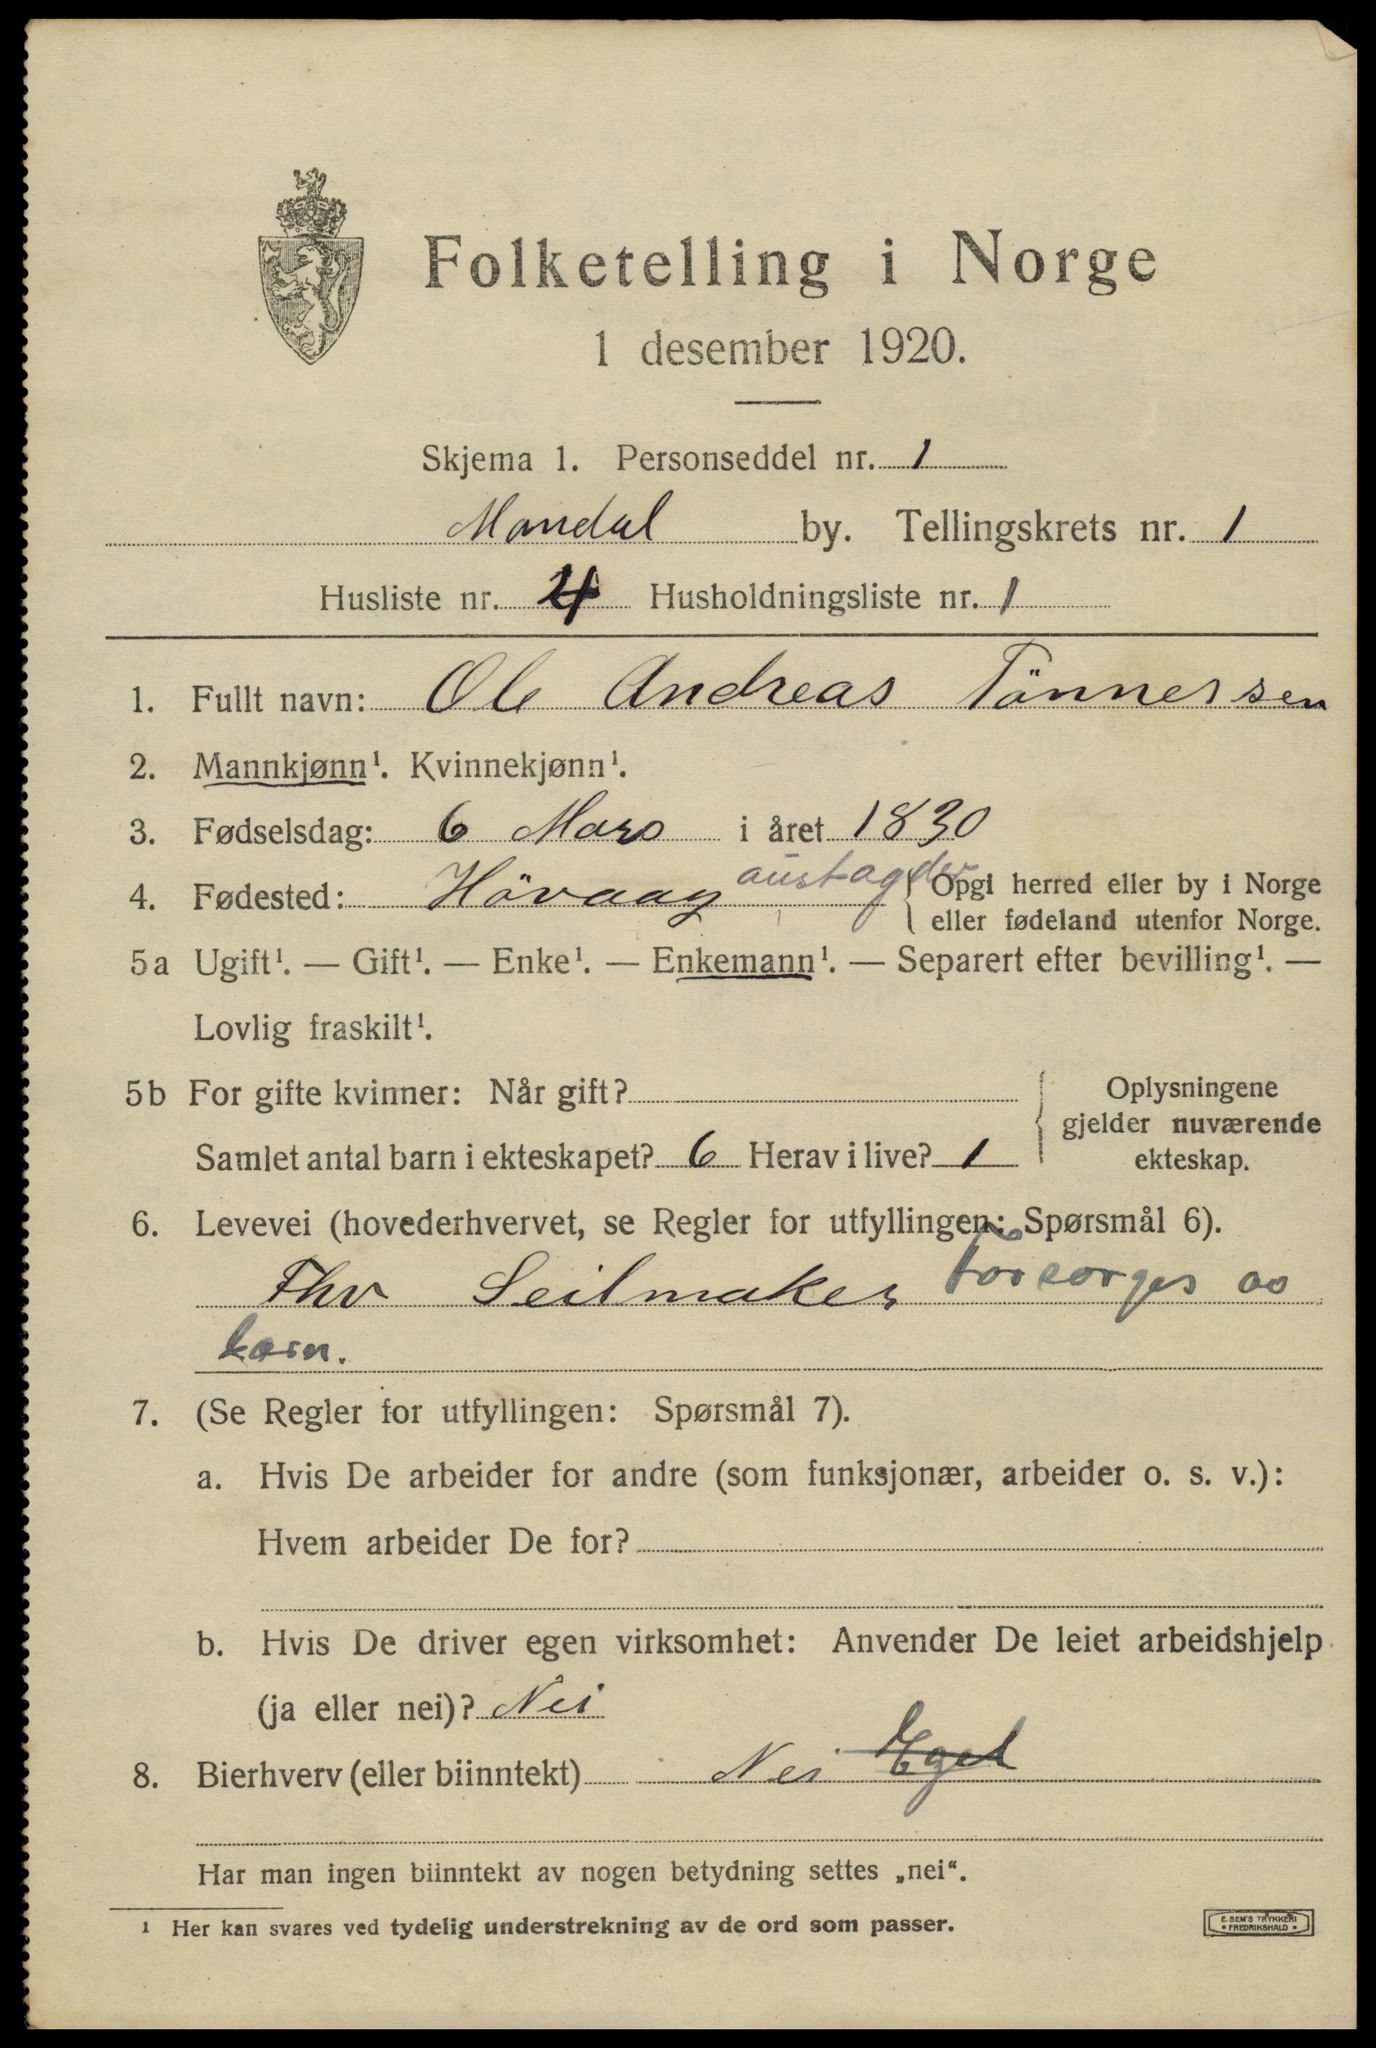 Folketelling i Norge
1 desember 1920.
Skjema 1. Personseddel nr. 1
Mandal by. Tellingskrets nr. 1
Husliste nr. 4 Husholdningsliste nr. 1
1. Fullt navn: Ole Andreas Tönnersen
2. Mannkjønn¹. Kvinnekjønn¹.
3. Fødselsdag: 6 Mars i året 1830
4. Fødested: Hövaag austagder Opgi herred eller by i Norge
eller fødeland utenfor Norge.
5a Ugift¹. — Gift¹. — Enke¹. — Enkemann¹. — Separert efter bevilling¹. —
Lovlig fraskilt¹.
5b For gifte kvinner: Når gift?
Samlet antal barn i ekteskapet? 6 Herav i live? 1
Oplysningene
gjelder nuværende
ekteskap.
6. Levevei (hovederhvervet, se Regler for utfyllingen: Spørsmål 6).
Fhv Seilmaker forsorges av
barn.
7. (Se Regler for utfyllingen: Spørsmål 7).
a. Hvis De arbeider for andre (som funksjonær, arbeider o. s. v.):
Hvem arbeider De for?
b. Hvis De driver egen virksomhet: Anvender De leiet arbeidshjelp
(ja eller nei)? Nei
8. Bierhverv (eller biinntekt) Nei
Har man ingen biinntekt av nogen betydning settes „nei“.
¹ Her kan svares ved tydelig understrekning av de ord som passer.
E. SEM'S TRYKKERI
• FREDRIKSHALD •